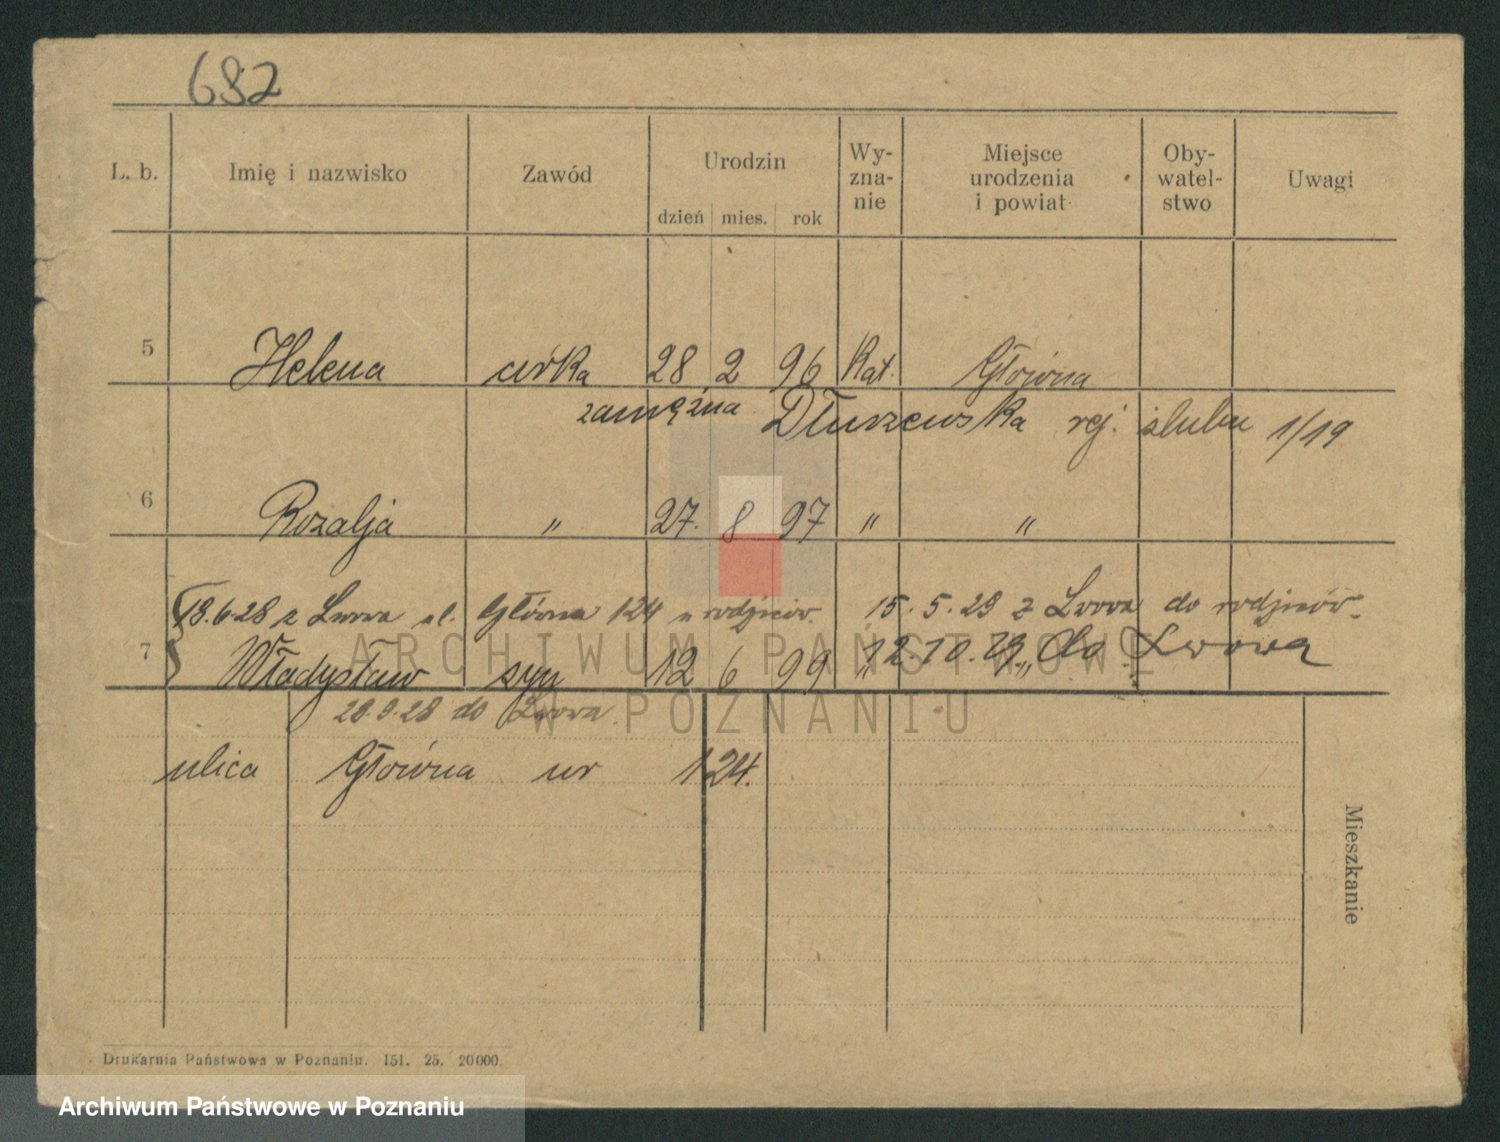 682
L. b. Imię i nazwisko Zawód Urodzin Wy- Miejsce Oby- Uwagi
zna- urodzenia watel-
dzień mies. rok nie i powiat stwo
5 Helena córka 28 2 96 Kat. Główna
zamężna Dłuszewska rej. ślubu 1/19
6 Rozalja " 27. 8 97 " "
18.6.28 z Lwowa ul. Główna 124 u rodziców. 15.5.29 z Lwowa do rodziców.
12.10.29 do Lwowa
7 Władysław syn 12 6 99 " "
28.9.28 do Lwowa
ulica Główna nr 124.
Mieszkanie
Drukarnia Państwowa w Poznaniu. 151. 25. 20000.
ARCHIWUM PAŃSTWOWE
W POZNANIU
Archiwum Państwowe w Poznaniu